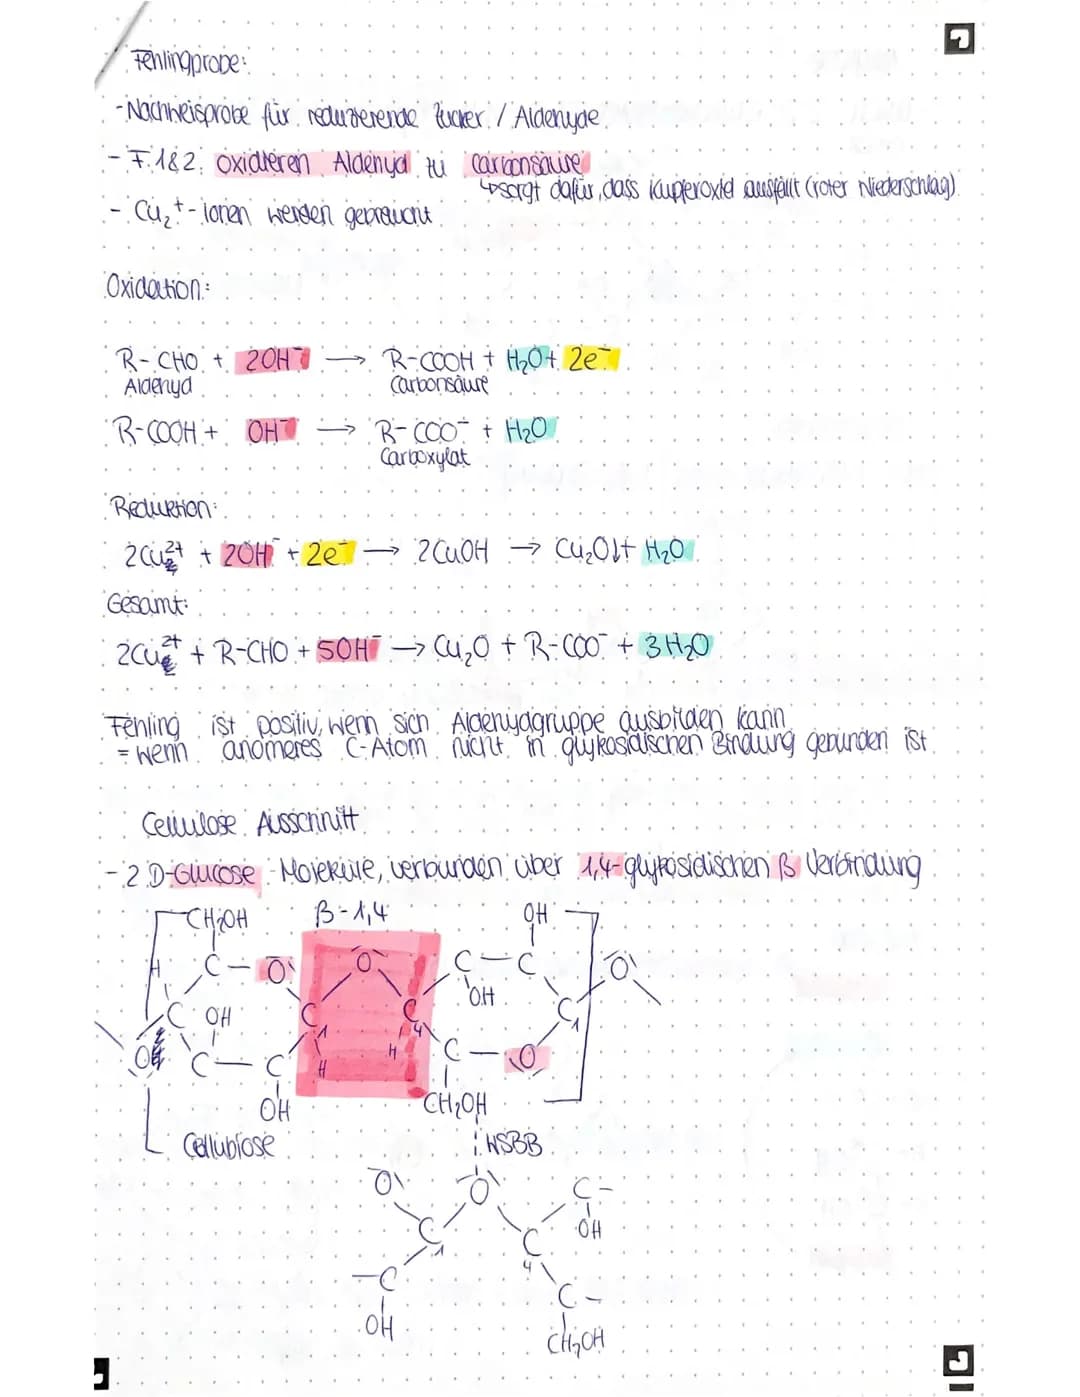 Fehlingprobe:
- Nachweisprobe für reduzierende Zucker / Aldehyde
- F.1&2: oxidieren Aldehyd zu Carbonsäure
↳ sorgt dafür, dass Kupferoxid ausfällt (roter Niederschlag)
- Cu₂⁺-Ionen werden gebraucht
Oxidation:
R-CHO + 2OH⁻ → R-COOH + H₂O + 2e⁻
Aldehyd Carbonsäure
R-COOH + OH⁻ → R-COO⁻ + H₂O
Carboxylat
Reduktion:
2Cu²⁺ + 2OH⁻ + 2e⁻ → 2CuOH → Cu₂O↓ + H₂O
Gesamt:
2Cu²⁺ + R-CHO + 5OH⁻ → Cu₂O + R-COO⁻ + 3H₂O
Fehling ist positiv, wenn sich Aldehydgruppe ausbilden kann
= wenn anomeres C-Atom nicht in glykosidischen Bindung gebunden ist
Cellulose Ausschnitt
- 2 D-Glucose-Moleküle, verbunden über 1,4-glykosidischen β Verbindung
CH₂OH β-1,4 OH
H C - O O C - C O
C OH C C OH C
1 4 1
O C - C H H C - O
OH CH₂OH
Cellubiose WSBB
O O C -
C C OH
1 4
- C C -
OH CH₂OH